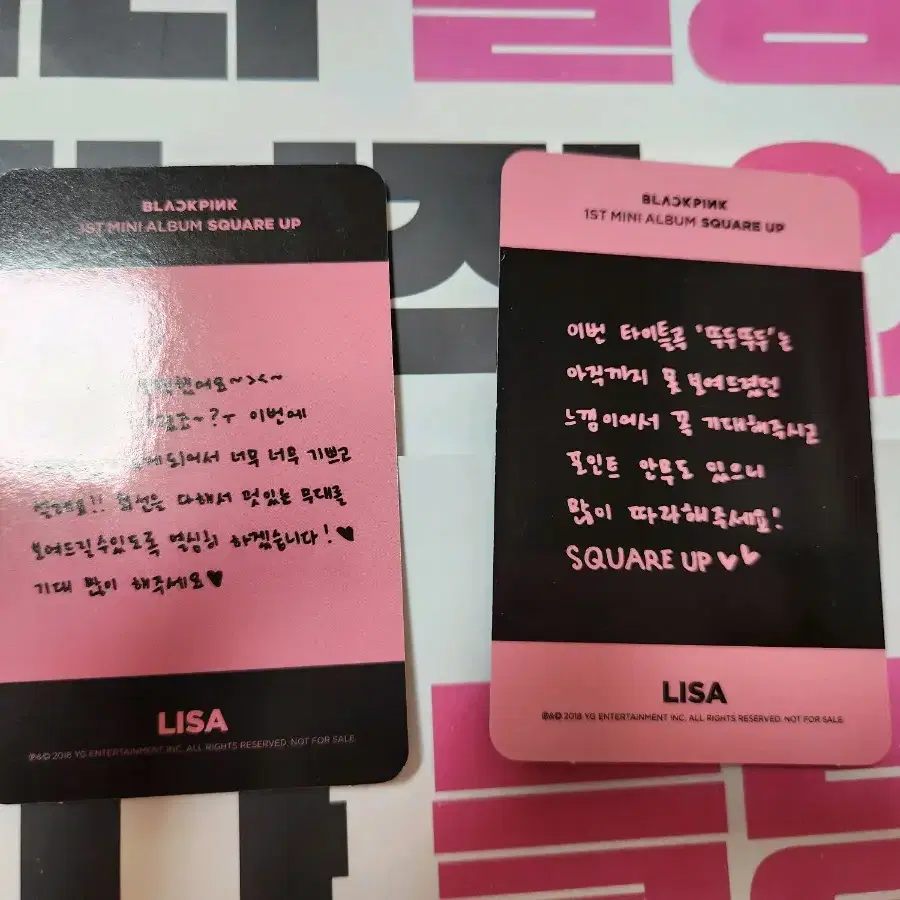 BLACKPINK
1ST MINI ALBUM SQUARE UP
했어요~><~
~?ㅜ 이번에
되어서 너무 너무 기쁘고
최선을 다해서 멋있는 무대를
보여드릴수있도록 열심히 하겠습니다!♥
기대 많이 해주세요♥
LISA
℗&© 2018 YG ENTERTAINMENT INC. ALL RIGHTS RESERVED. NOT FOR SALE.
BLACKPINK
1ST MINI ALBUM SQUARE UP
이번 타이틀곡 '뚜두뚜두'는
아직까지 못 보여드렸던
느낌이어서 꼭 기대해주시고
포인트 안무도 있으니
많이 따라해주세요!
SQUARE UP ♥♥
LISA
℗&© 2018 YG ENTERTAINMENT INC. ALL RIGHTS RESERVED. NOT FOR SALE.